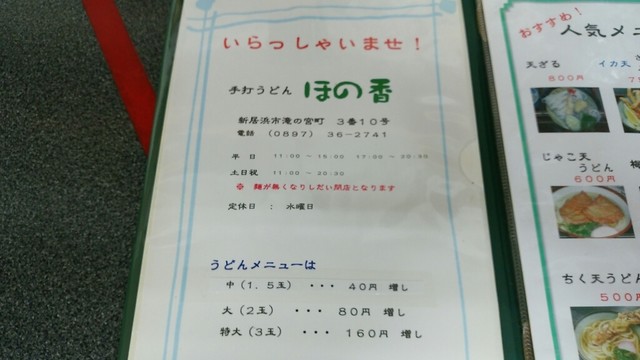 いらっしゃいませ！
手打うどん ほの香
新居浜市滝の宮町 3番10号
電話 (0897) 36-2741
平日 11:00～15:00 17:00～20:30
土日祝 11:00～20:30
※ 麺が無くなりしだい閉店となります
定休日 ： 水曜日
うどんメニューは
中(1.5玉) ・・・ 40円 増し
大(2玉) ・・・ 80円 増し
特大(3玉) ・・・ 160円 増し
おすすめ！
人気メニ
天ざる
800円
イカ天
じゃこ天
うどん
600円
ちく天うどん
500円